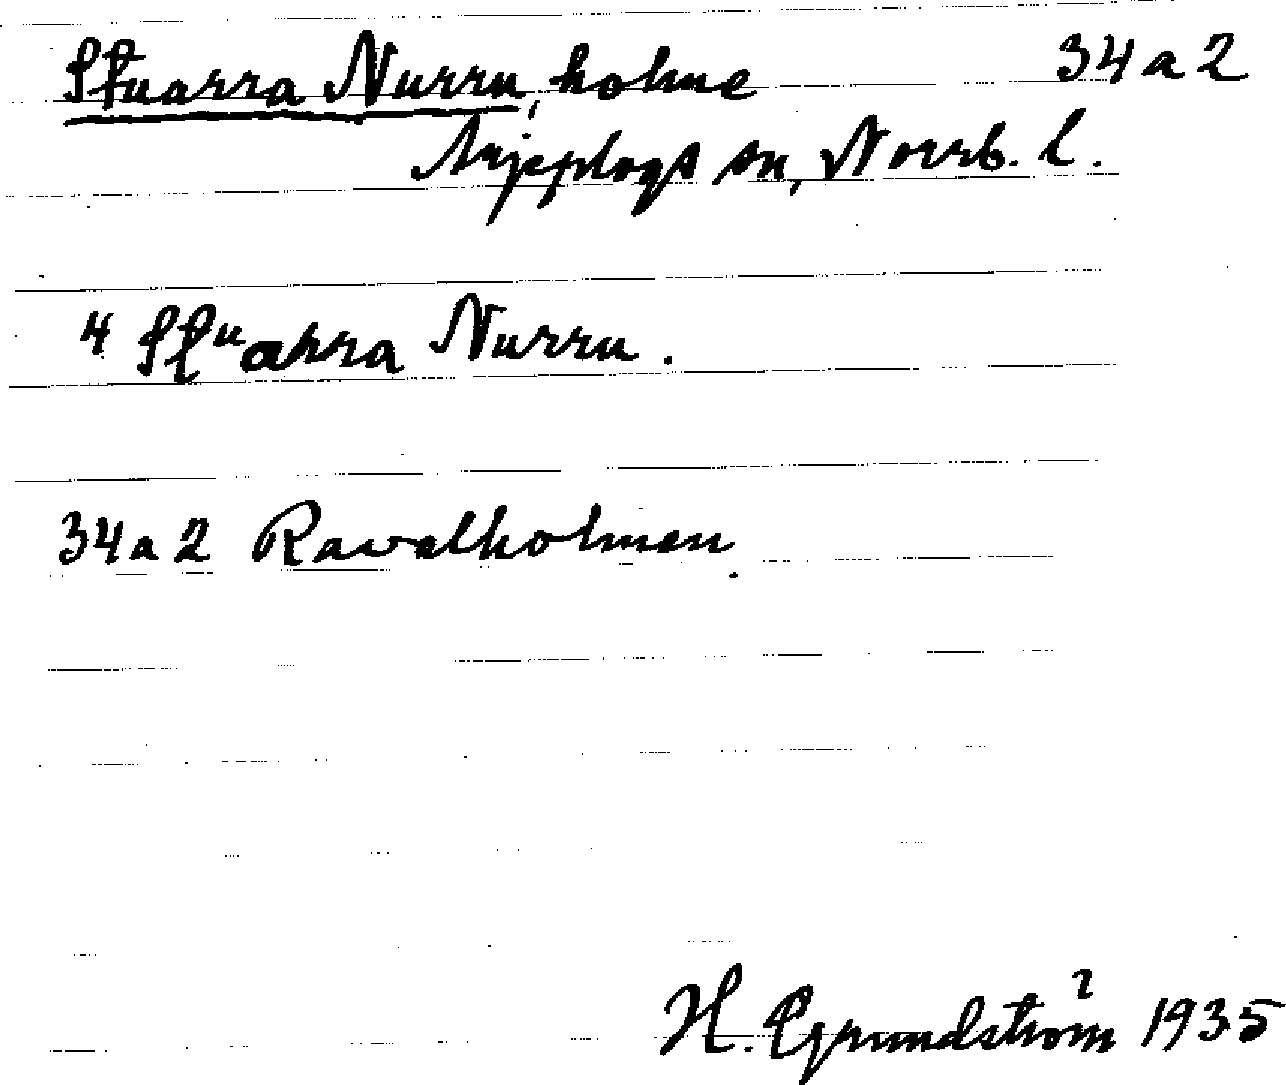 Stuarra Nurru, holme 34 a 2
Arjeplogs sn, Norrb. l.
4 Stuarra Nurru.
34 a 2 Ravalholmen
H. Grundström 1935